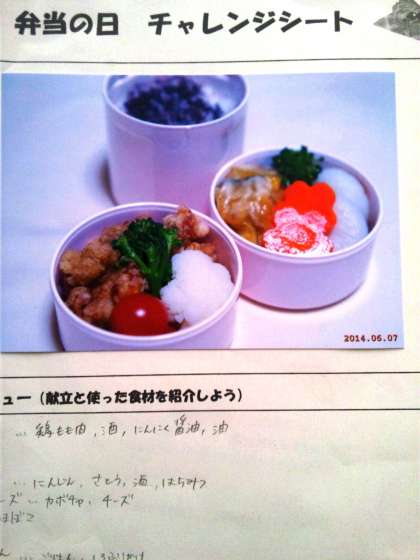 弁当の日　チャレンジシート
2014.06.07
ュー（献立と使った食材を紹介しよう）
… 鶏もも肉, 酒, にんにく醤油, 油
… にんじん, さとう, 酒, はちみつ
ーズ … カボチャ, チーズ
まぼこ
ん